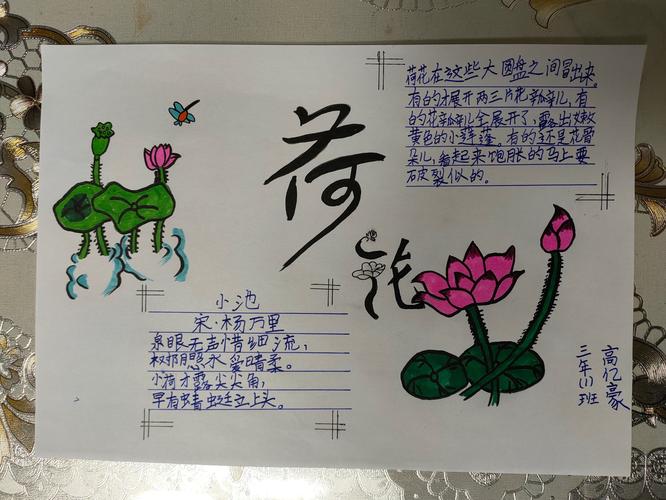 荷花
荷花在这些大圆盘之间冒出来。
有的才展开两三片花瓣儿,有
的花瓣儿全展开了,露出嫩
黄色的小莲蓬。有的还是花骨
朵儿,看起来饱胀的马上要
破裂似的。
小池
宋·杨万里
泉眼无声惜细流,
树阴照水爱晴柔。
小荷才露尖尖角,
早有蜻蜓立上头。
三年(1)班
高亿豪